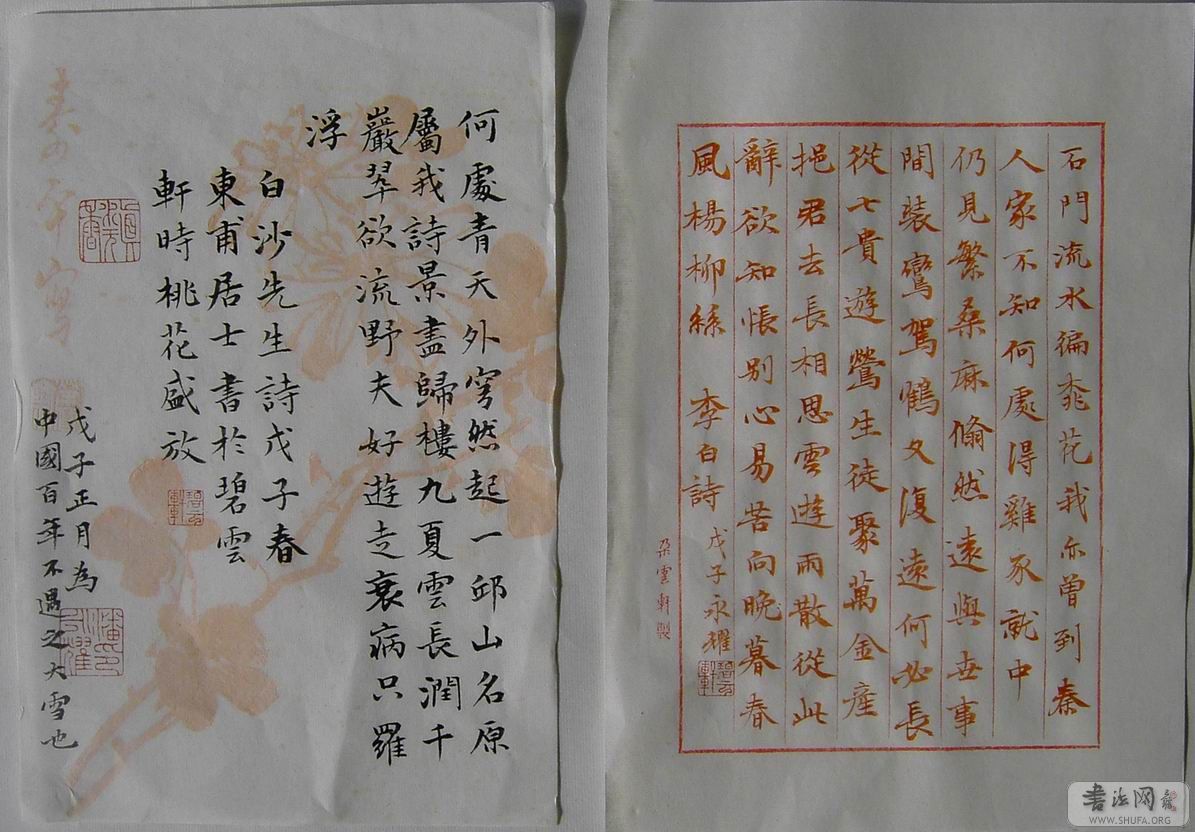 石門流水徧桃花我亦曾到秦
人家不知何處得雞豕就中
仍見繁桑麻翛然遠與世事
間裝鸞駕鶴又復遠何必長
從七貴遊勞生徒聚萬金產
挹君去長相思雲遊雨散從此
辭欲知悵別心易苦向晚暮春
風楊柳絲 李白詩 戊子永耀
朵雲軒製
何處青天外穹然起一邱山名原
屬我詩景盡歸樓九夏雲長潤千
巖翠欲流野夫好遊走衰病只羅
浮
白沙先生詩戊子春
東甫居士書於碧雲
軒時桃花盛放
戊子正月為
中國百年不遇之大雪也
書法网
WWW.SHUFA.ORG